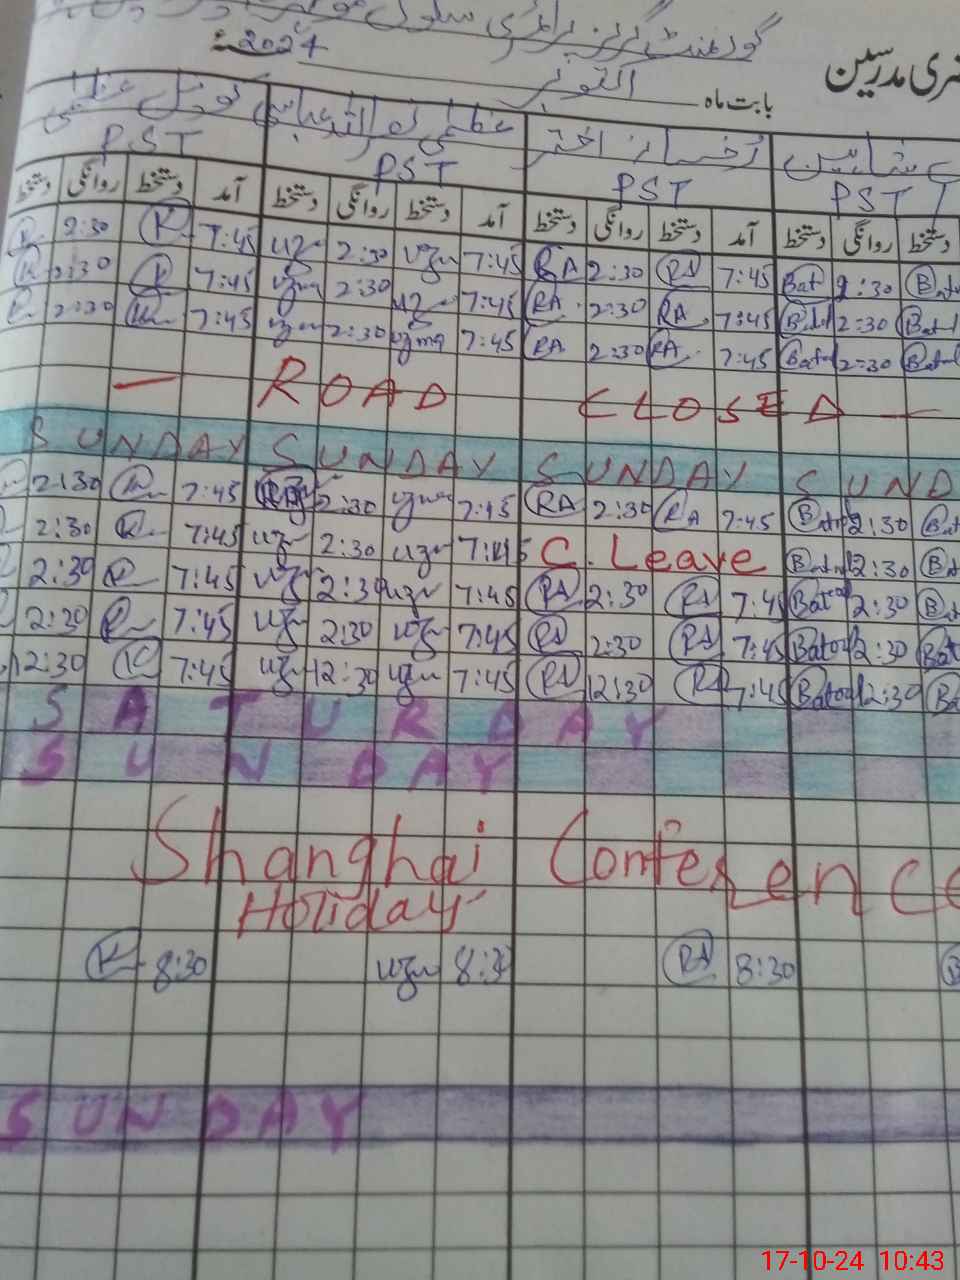 گورنمنٹ گرلز پرائمری سکول
حاضری مدرسین بابت ماہ اکتوبر 2024
رخسانہ اختر
PST PST PST PST
دستخط روانگی دستخط آمد دستخط روانگی دستخط آمد دستخط روانگی دستخط آمد دستخط روانگی دستخط
2:30 K 7:45 uzm 2:30 uzm 7:45 RA 2:30 RA 7:45 Bat 2:30
2:30 K 7:45 uzma 2:30 uz 7:45 RA 2:30 RA 7:45 2:30
2:30 7:45 uzma 2:30 uzma 7:45 RA 2:30 RA 7:45 2:30
— ROAD CLOSED —
SUNDAY SUNDAY SUNDAY SUND
2:30 7:45 2:30 uzma 7:45 RA 2:30 RA 7:45 2:30
2:30 K 7:45 uzm 2:30 uzm 7:45 C. Leave 2:30
2:30 K 7:45 uzm 2:30 uzm 7:45 RA 2:30 RA 7:45 Batool 2:30
2:30 7:45 uzm 2:30 uzm 7:45 RA 2:30 RA 7:45 Batool 2:30
12:30 K 7:45 uzm 12:30 uzm 7:45 RA 12:30 RA 7:45 Batool 12:30
SATURDAY
SUNDAY
Shanghai Conference
Holiday
K 8:30 uzm 8:30 RA 8:30
SUNDAY
17-10-24 10:43